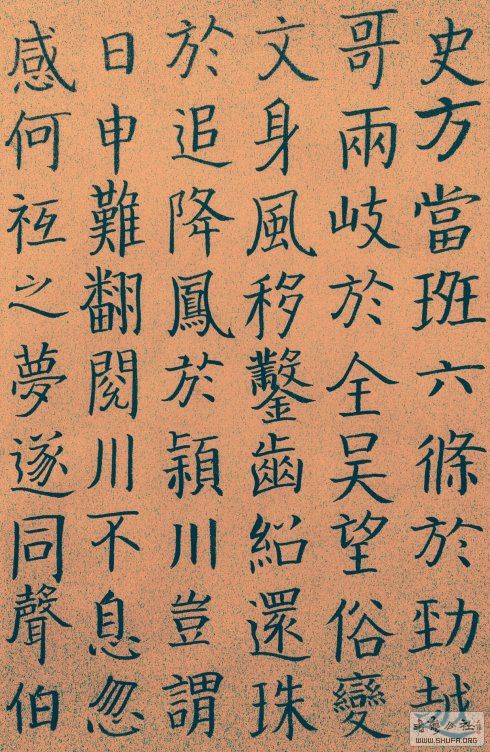 史方當班六條於勁越
哥兩岐於全吳望俗變
文身風移鑿齒紹還珠
於追降鳳於頴川豈謂
日申難翻閱川不息忽
感何祗之夢遂同聲伯
WWW.SHUFA.ORG